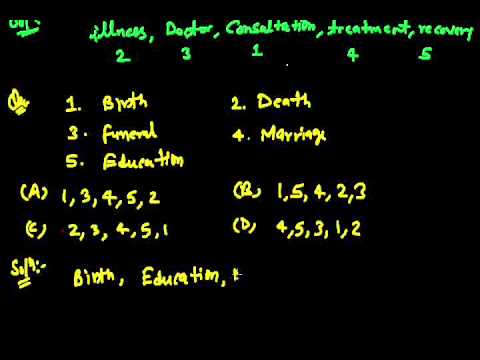 illness, Doctor, Consultation, treatment, recovery
2 3 1 4 5
Que 1. Birth 2. Death
3. Funeral 4. Marriage
5. Education
(A) 1, 3, 4, 5, 2 (B) 1, 5, 4, 2, 3
(C) 2, 3, 4, 5, 1 (D) 4, 5, 3, 1, 2
Solⁿ:- Birth, Education,